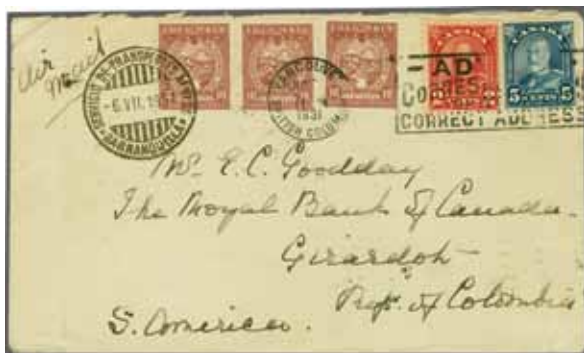 Air
mail
SERVICIO DE TRANSPORTES AEREOS
6.VII.1931
BARRANQUILLA
VANCOUVER
1931
BRITISH COLUMBIA
CANADA
5 CENTS 5
AD
CORRECT ADDRESS
Mr. E.C. Goodday
The Royal Bank of Canada.
Girardot
Rep. of Colombia
S. America.